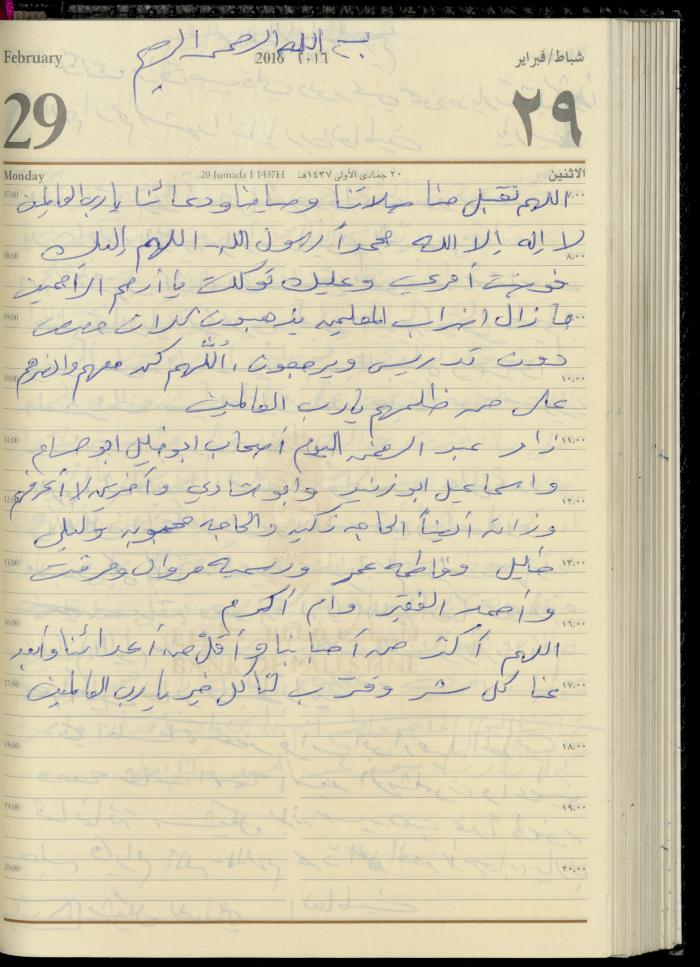 بسم الله الرحمن الرحيم
February 2016 ٢٠١٦ شباط/فبراير
29 ٢٩
Monday 20 Jumada I 1437H ٢٠ جمادى الأولى ١٤٣٧هـ الاثنين
07:00 اللهم تقبل منا صلاتنا وصيامنا ودعائنا يا رب العالمين ٧:٠٠
لا إله إلا الله محمداً رسول الله اللهم إليك
08:00 ٨:٠٠
فوضت أمري وعليك توكلت يا أرحم الراحمين
09:00 ما زال اضراب المعلمين يذهبون ثلاث حصص ٩:٠٠
دون تدريس ويرجعون، اللهم كن معهم وانصرهم
10:00 ١٠:٠٠
على من ظلمهم يا رب العالمين
11:00 زار عبد الرحمن اليوم أصحاب ابو خليل ابو حسام ١١:٠٠
واسماعيل ابو زنيد وابو شادي وآخرين لا أعرفهم
12:00 ١٢:٠٠
وزارت أيضاً الحاجه زكيه والحاجه محبوبه وليلى
13:00 خليل وفاطمه عمر ورسميه مروان وميرفت ١٣:٠٠
وأحمد الفقير وام أكرم
16:00 ١٦:٠٠
اللهم أكثر من أحبابنا وأقلل من أعدائنا وأبعد
BANK OF PALESTINE
17:00 عنا كل شر وقرب لنا كل خير يا رب العالمين ١٧:٠٠
18:00 ١٨:٠٠
19:00 ١٩:٠٠
20:00 ٢٠:٠٠